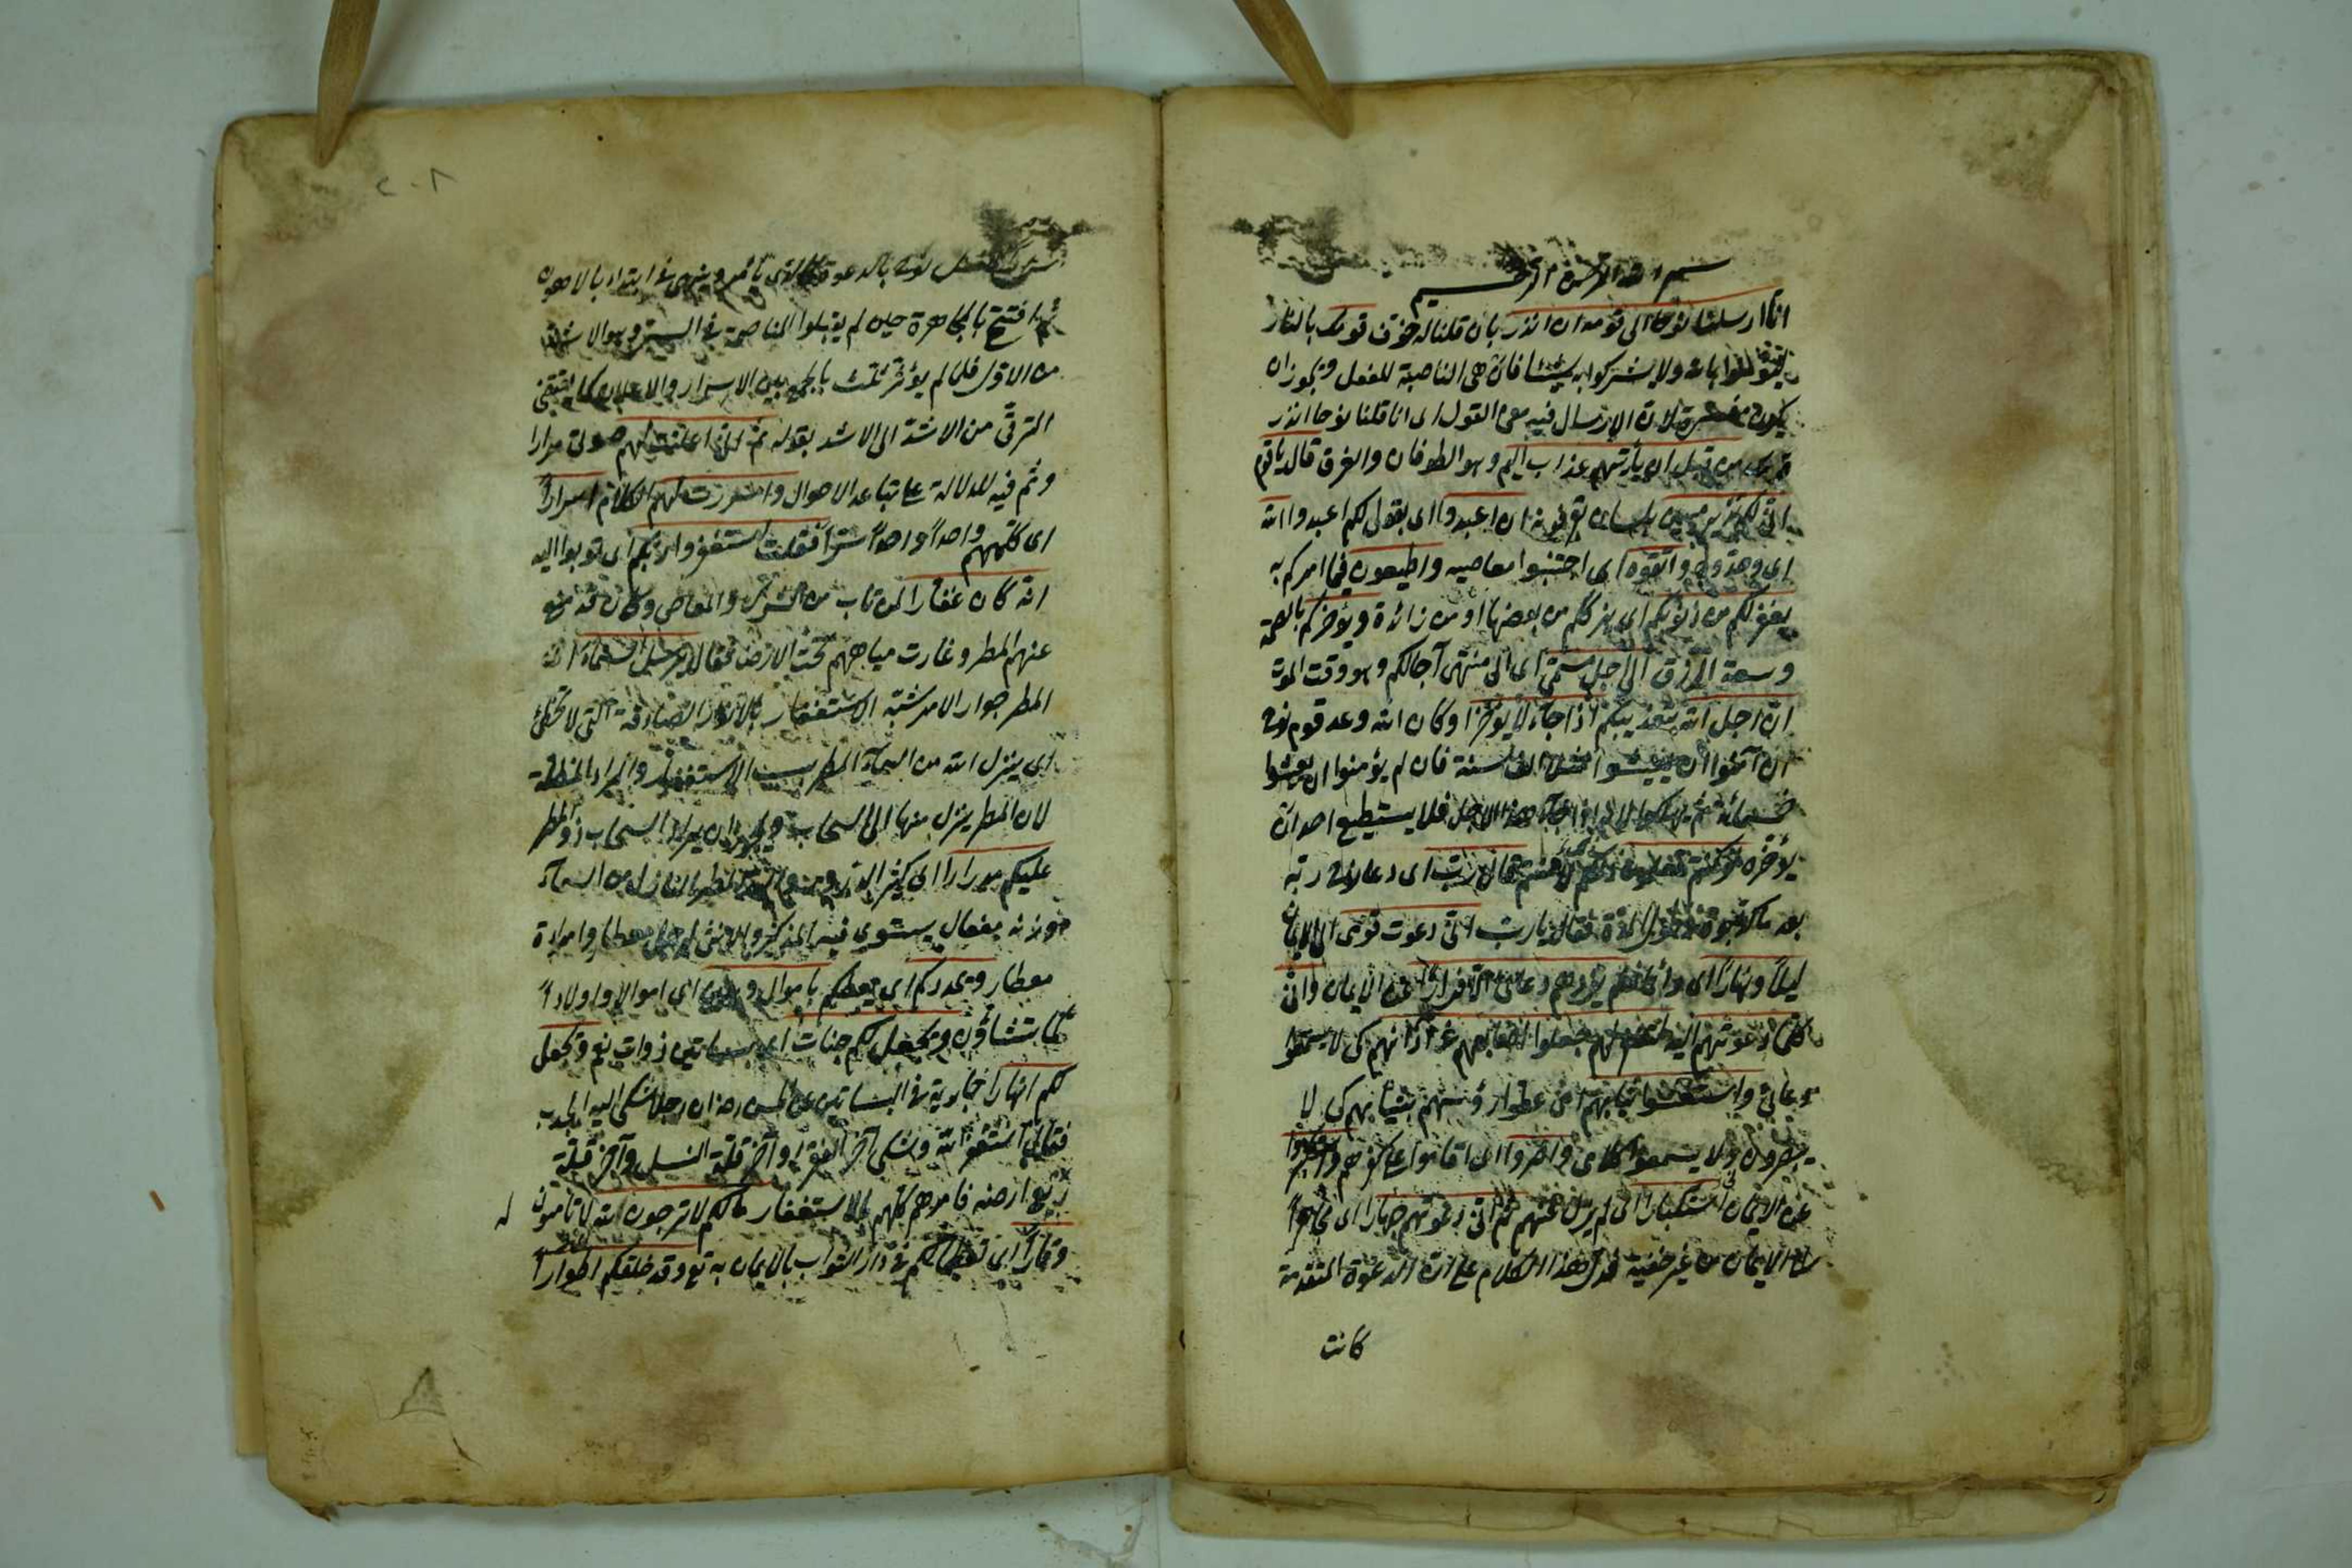 بسم الله الرحمن الرحيم
انا ارسلنا نوحا الى قومه ان انذر بان قلنا له خوف قومك بالنار
ليؤمنوا بالله ولا يشركوا به شيئا فان هى الناصبة للفعل ويجوز ان
يكون مفسرة لان الارسال فيه معنى القول اى انا قلنا نوحا انذر
قومك من قبل ان يأتيهم عذاب اليم وهو الطوفان والغرق قال يا قوم
انى لكم نذير مبين بلسان تعرفونه ان اعبدوا اى بقولى لكم اعبدوا الله
اى وحدوه واتقوه اى اجتنبوا معاصيه واطيعون فيما امركم به
يغفر لكم من ذنوبكم اى بعضها او من زائدة ويؤخركم بالصحة
وسعة الرزق الى اجل مسمى اى الى منتهى آجالكم وهو وقت الموت
ان اجل الله بتعذيبكم اذا جاء لا يؤخر وكان الله وعد قوم نوح
ان آمنوا ان يعيشوا الف سنة فان لم يؤمنوا ان يعيشوا
خمسمائة ثم يهلكوا جاء هذا الاجل فلا يستطيع احد ان
يؤخره لو كنتم تعلمون قال رب اى دعا نوح ربه
بعد ما كذبوه فى طول المدة فقال يا رب انى دعوت قومى الى الايمان
ليلا ونهارا اى دائما فلم يزدهم دعائى الا فرارا عن الايمان وانى
كلما دعوتهم اليه لتغفر لهم جعلوا اصابعهم فى آذانهم كى لا يسمعوا
دعائى واستغشوا ثيابهم اى غطوا رؤسهم بثيابهم كى لا
يبصرون ولا يسمعوا كلامى واصروا اى اقاموا على كفرهم واستكبروا
عن الايمان استكبارا ثم انى دعوتهم جهارا اى مجاهرا
الى الايمان من غير خفية فدل هذا الكلام على ان الدعوة المتقدمة
كانت
٢٠١
بالدعوة كالذى يأمر وينهى فى ابتداء بالاهون
ثم افتتح بالمجاهرة حين لم يقبلوا المناصحة فى السر وهو الاشد
من الاول فلما لم يؤثر ثلث بالجمع بين الاسرار والاعلان كما يقتضى
الترقى من الاشد الى الاشد بقوله ثم انى اعلنت لهم صوتى مرارا
وثم فيه للدلالة على تباعد الاحوال واسررت لهم الكلام اسرارا
اى كلمتهم واحدا واحدا سرا فقلت استغفروا ربكم اى توبوا اليه
انه كان غفارا لمن تاب من الشرك والمعاصى وكان قد منع
عنهم المطر وغارت مياههم تحت الارض فقال يرسل السماء اى
المطر جواب الامر شبه الاستغفار بالانواء الصادقة التى لا تخطئ
اى ينزل الله من السماء المطر بسبب الاستغفار والمراد المظلة
لان المطر ينزل منها الى السحاب ويجوز ان يراد السحاب ذو المطر
عليكم مدرارا اى كثير الدر المطر النازل من السماء
ووزنه مفعال يستوى فيه المذكر والمؤنث رجل معطار وامرأة
معطار ويمددكم اى يعطيكم باموال وبنين اى اموالا واولادا
كما تشاؤن ويجعل لكم جنات اى بساتين ذوات نعم ويجعل
لكم انهارا جارية فى البساتين عن الحسن ان رجلا شكى اليه الجدب
فقال استغفر الله وشكى آخر الفقر وآخر قلة النسل وآخر قلة
ريع ارضه فامرهم كلهم بالاستغفار ما لكم لا ترجون لله لا تأملون له
وقارا اى تعظيما لكم فى دار الثواب بالايمان به تع وقد خلقكم اطوارا